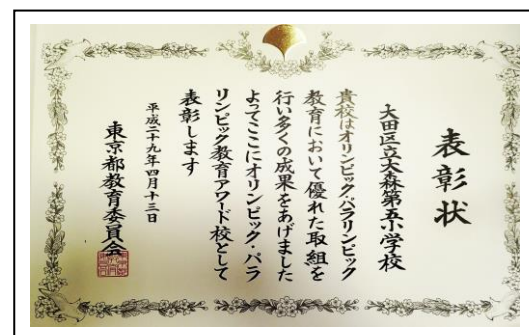 表彰状
大田区立大森第五小学校
貴校はオリンピック・パラリンピック
教育において優れた取組を
行い多くの成果をあげました
よってここにオリンピック・パラ
リンピック教育アワード校として
表彰します
平成二十九年四月十三日
東京都教育委員会